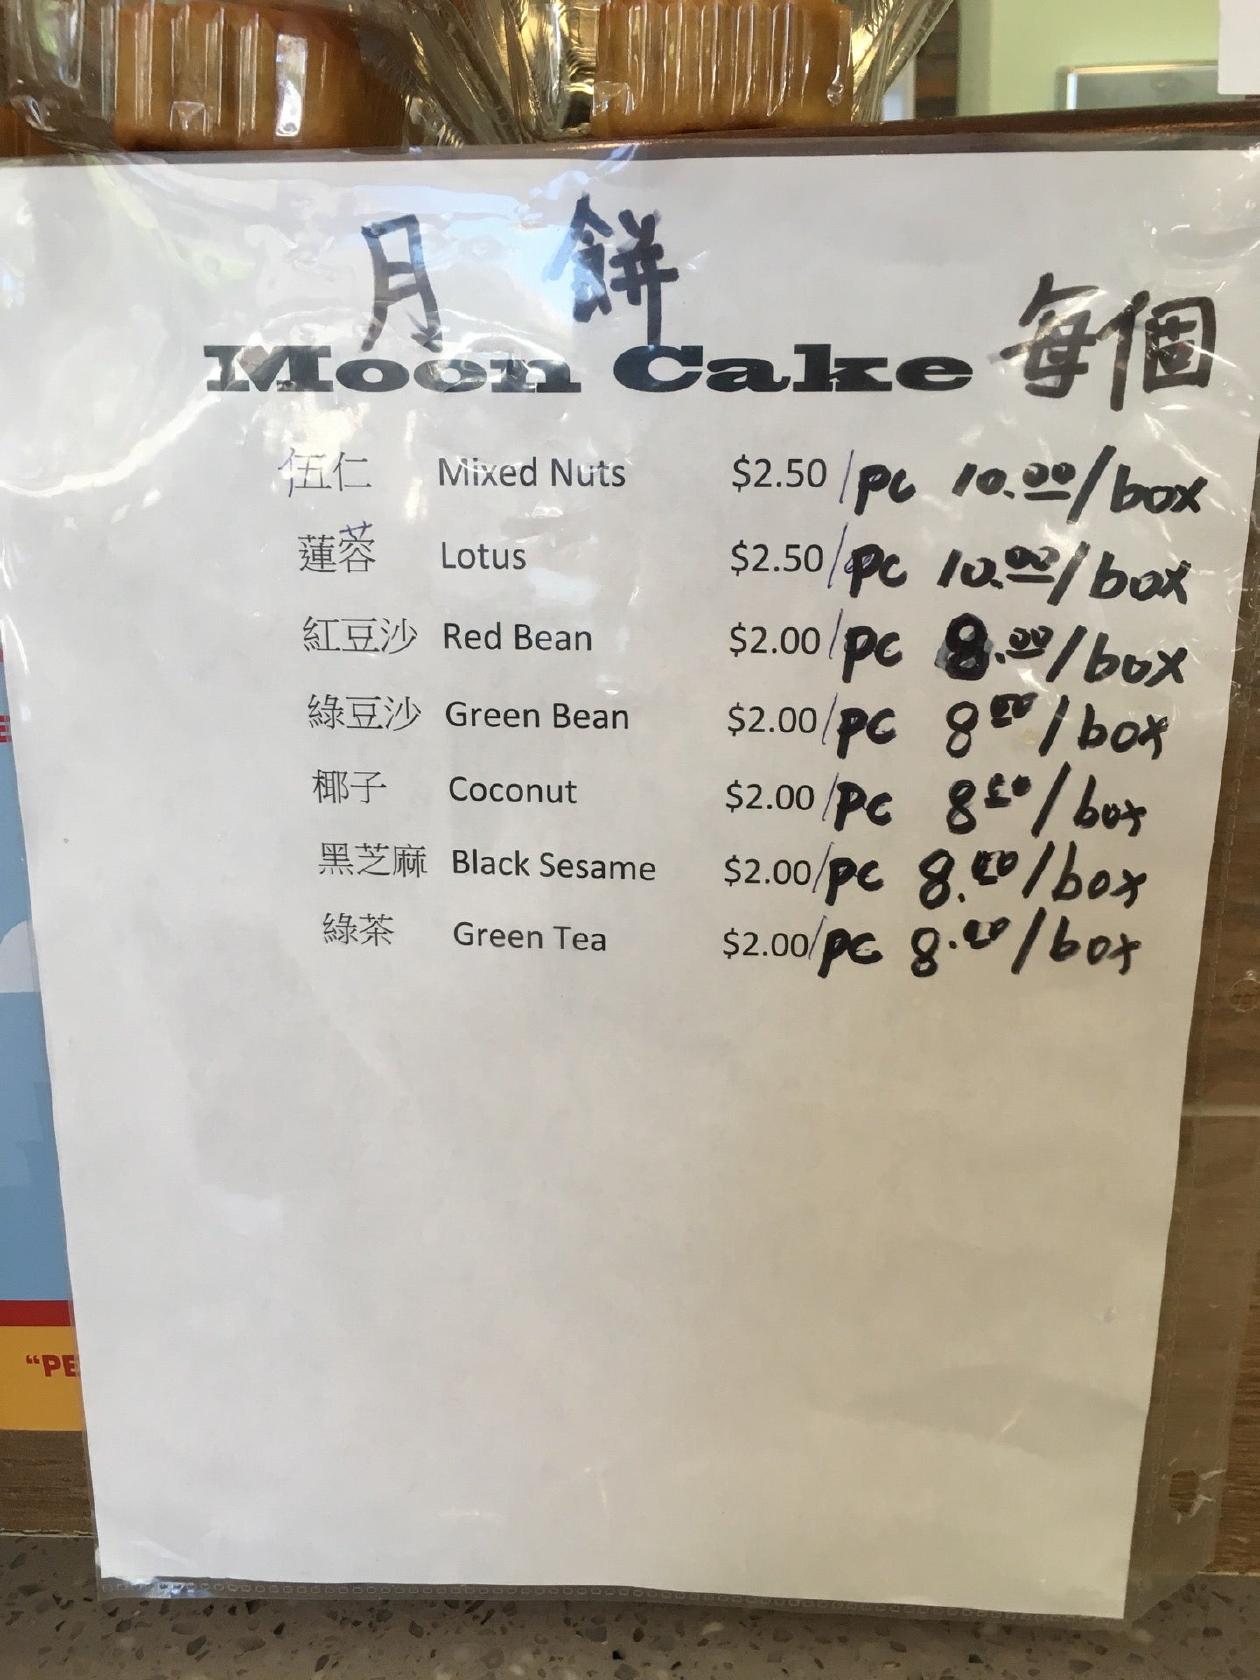 月餅
Moon Cake 每個
伍仁 Mixed Nuts $2.50/pc 10.00/box
蓮蓉 Lotus $2.50/pc 10.00/box
紅豆沙 Red Bean $2.00/pc 8.00/box
綠豆沙 Green Bean $2.00/pc 8.00/box
椰子 Coconut $2.00/pc 8.00/box
黑芝麻 Black Sesame $2.00/pc 8.00/box
綠茶 Green Tea $2.00/pc 8.00/box